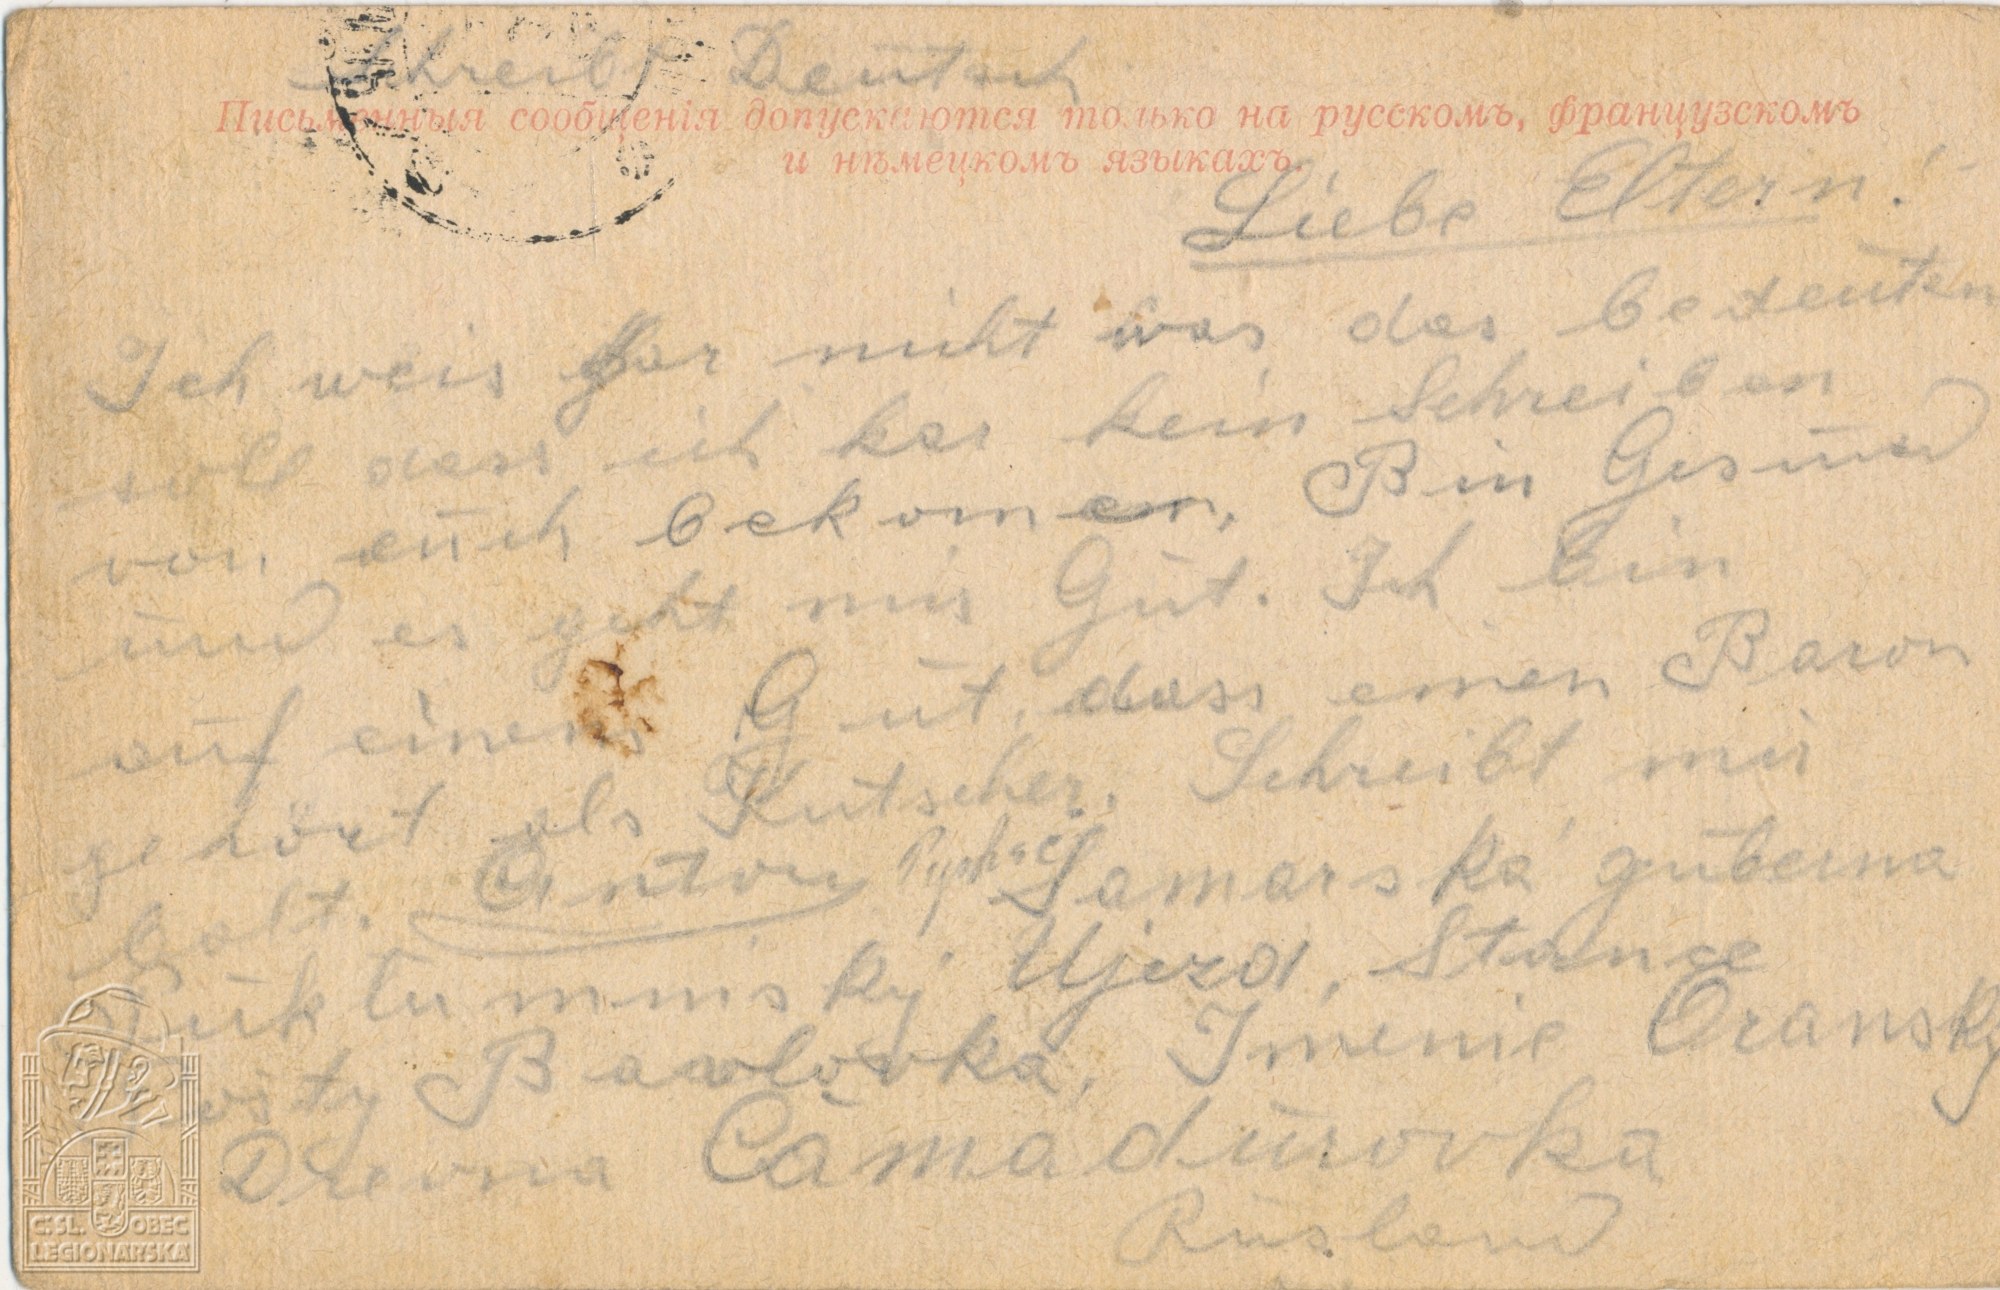 Schreibt Deutsch
Письменныя сообщенія допускаются только на русскомъ, французскомъ
и нѣмецкомъ языкахъ.
Liebe Eltern!
Ich weis gar nicht was das bedeuten
soll dass ich kar kein Schreiben
von euch bekomen. Bin Gesund
und es geht mir Gut. Ich bin
auf einem Gut, dass einen Baron
gehört als Kutscher. Schreibt mir
balt. Anton Samarská guberna
ujezd, Stance
Pavlovka, Imenie Oransky
Drevna Camadurovka
Rusland
ČSL. OBEC
LEGIONÁŘSKÁ